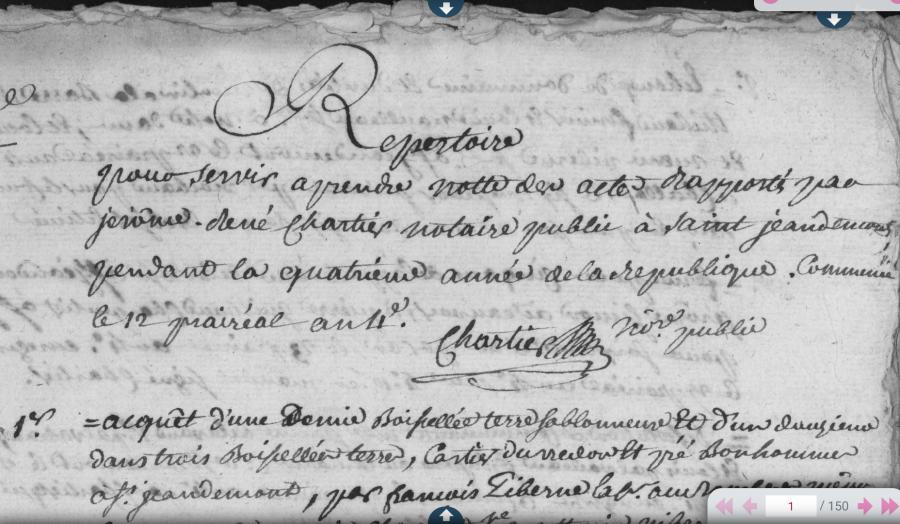 Repertoire
pour servir a prendre notte des actes rapportés par
jérôme-réné Chartier notaire public à saint jean de monts
pendant la quatriéme année de la république. Commencé
le 12 prairéal an 4e.
Chartier nore public
1er = acquêt d'une Demie Boissellée terre sablonneuse Et d'un douziéme
dans trois Boissellées terre, Cartier du redou Et pré Bonhommeau
a St jean demont, par francois Liberne
1 / 150